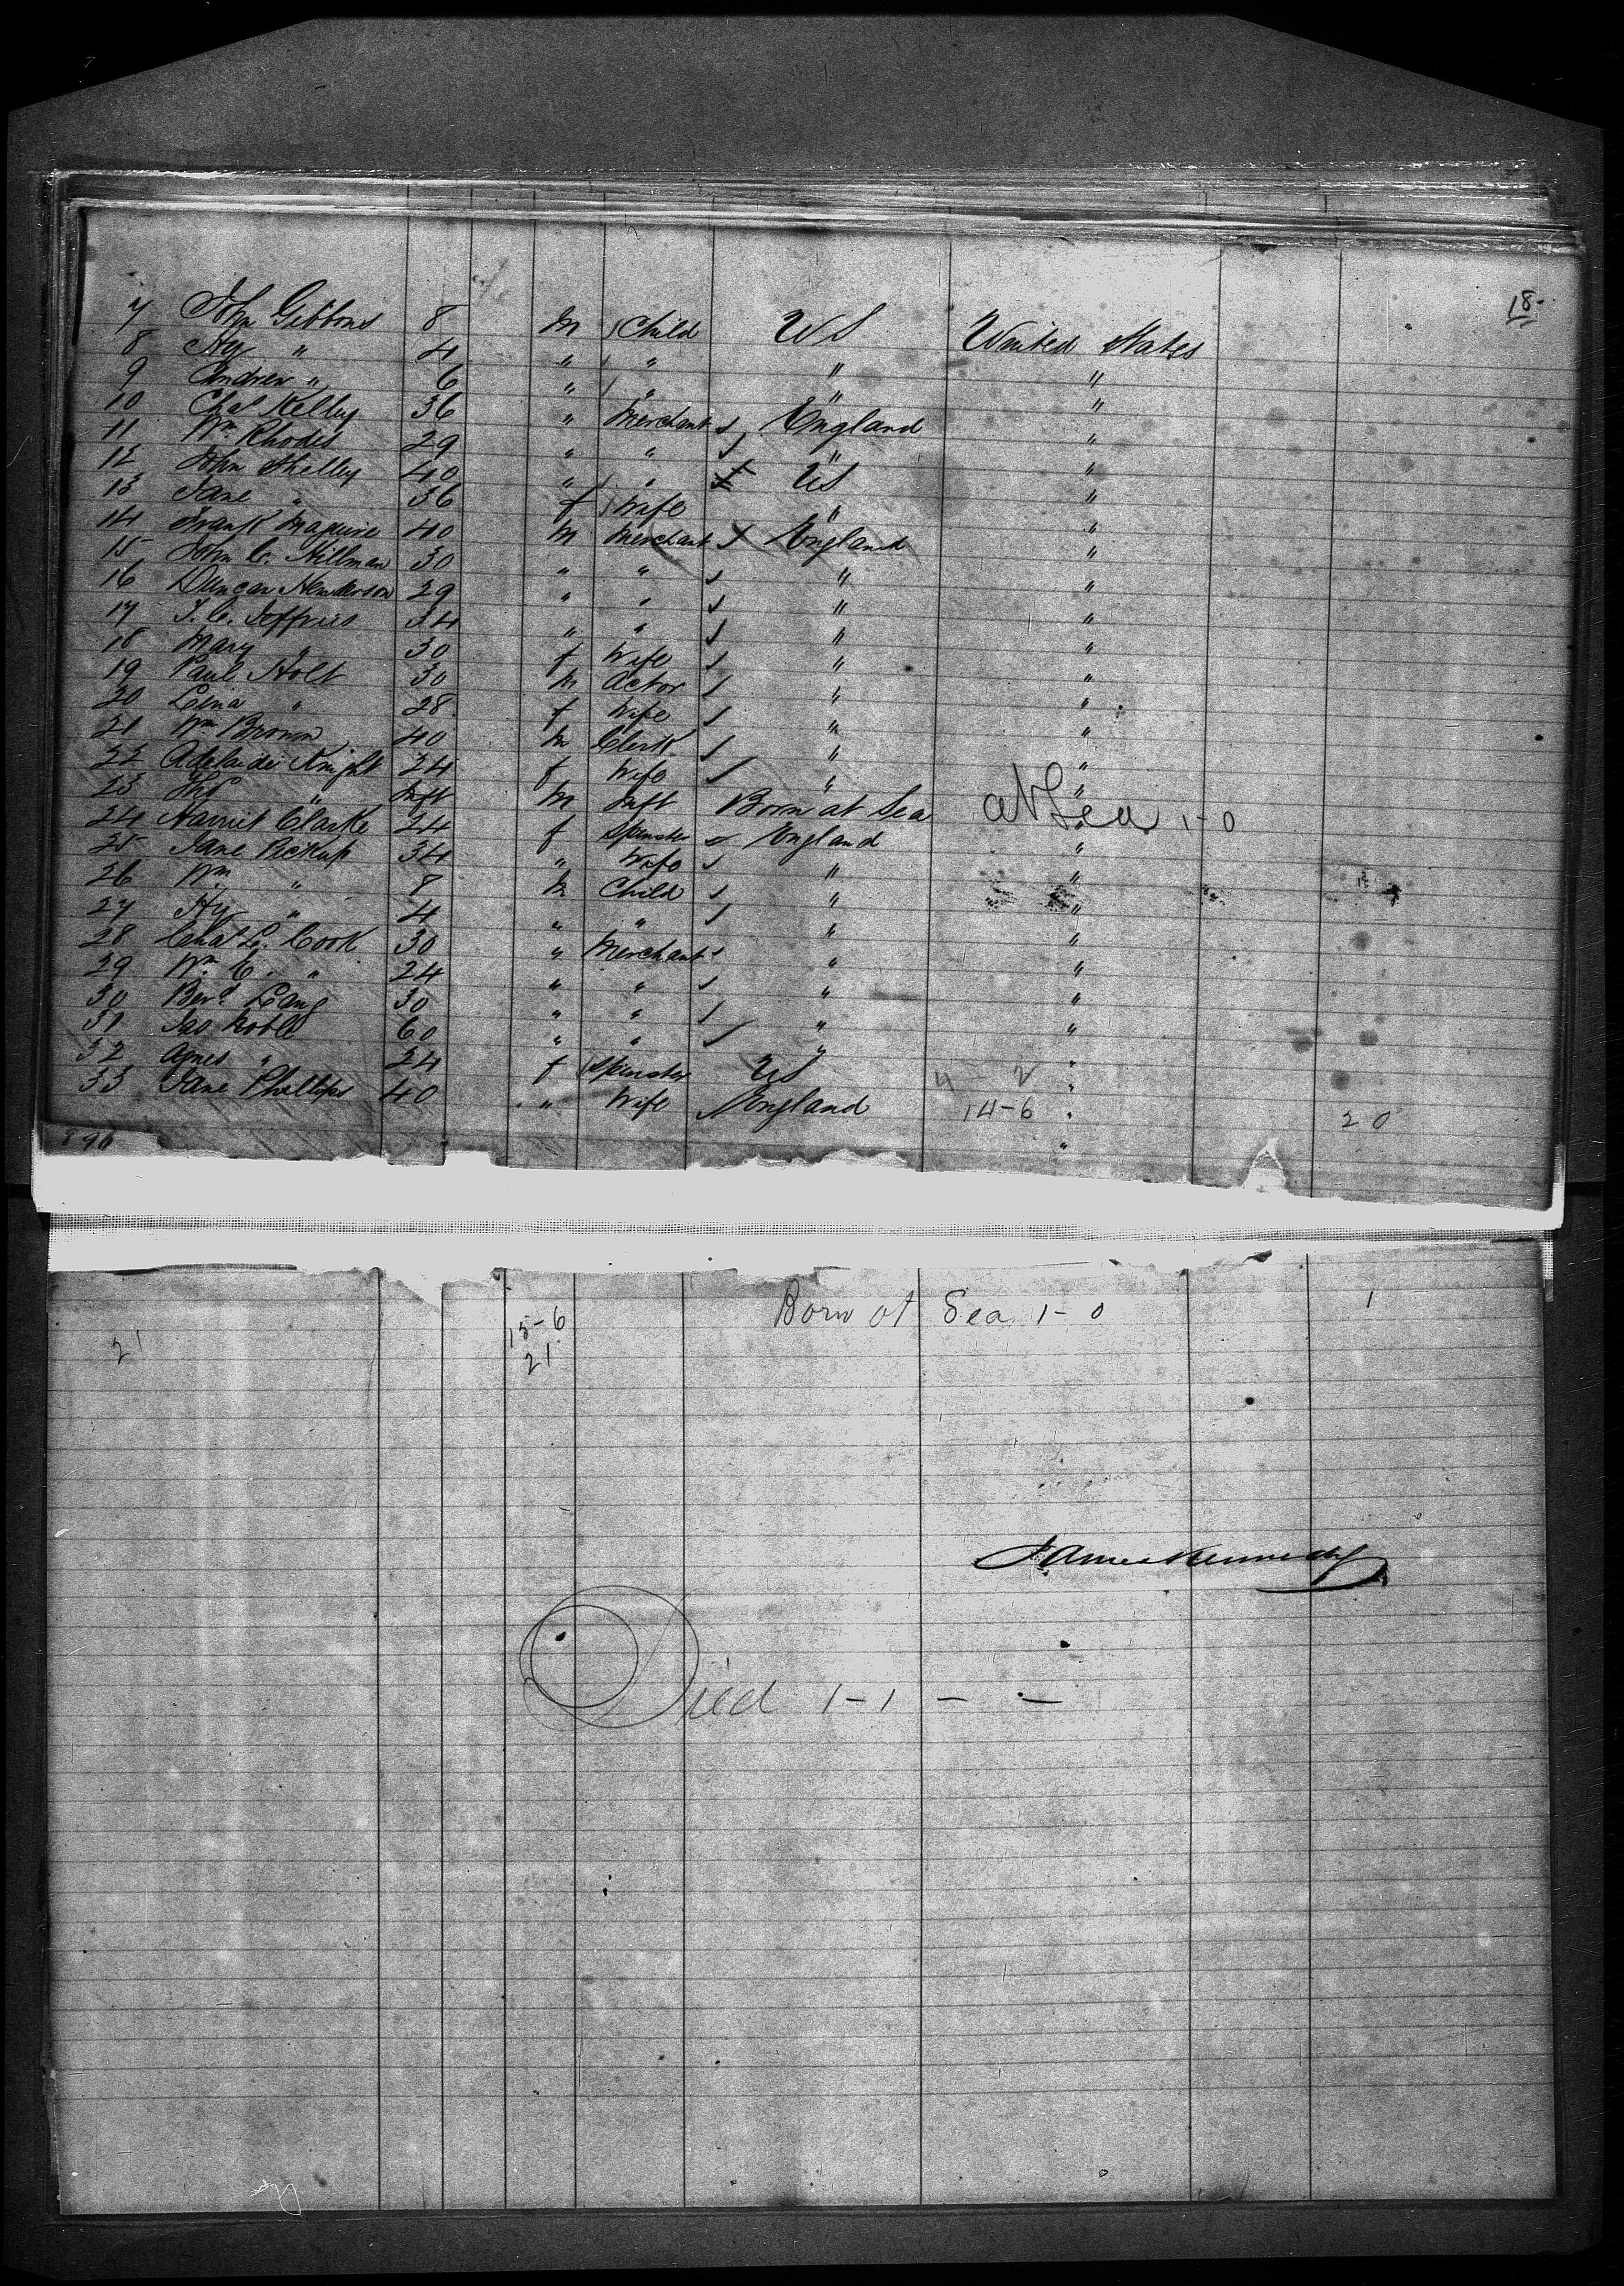 18
7 John Gibbons 8 M Child US United States
8 Hy " 4 " " " "
9 Andrew " 6 " " " "
10 Chas Kelley 36 " Merchant England "
11 Wm Rhodes 29 " " " "
12 John Shelley 40 " " US "
13 Jane " 36 f Wife " "
14 Frank Maguire 40 M Merchant England "
15 John C. Hillman 30 " " " "
16 Duncan Henderson 29 " " " "
17 J. C. Jeffries 34 " " " "
18 Mary " 30 f Wife " "
19 Paul Holt 30 M Actor " "
20 Lena " 28 f Wife " "
21 Wm Brown 40 M Clerk " "
22 Adelaide Knight 24 f Wife " "
23 Thos " Inft M Inft Born at Sea " at Sea 1-0
24 Harriet Clarke 24 f Spinster England "
25 Jane Pickup 34 " Wife " "
26 Wm " 8 M Child " "
27 Hy " 4 " " " "
28 Chas L. Cook 30 " Merchant " "
29 Wm C. " 24 " " " "
30 Berd Lang 30 " " " "
31 Jas Noble 60 " " " "
32 Agnes " 24 f Spinster US " 4-2
33 Jane Phillips 40 " Wife England " 14-6 20
890
Born at Sea 1-0 1
21 15-6
21
James Kennedy
Died 1-1 - -